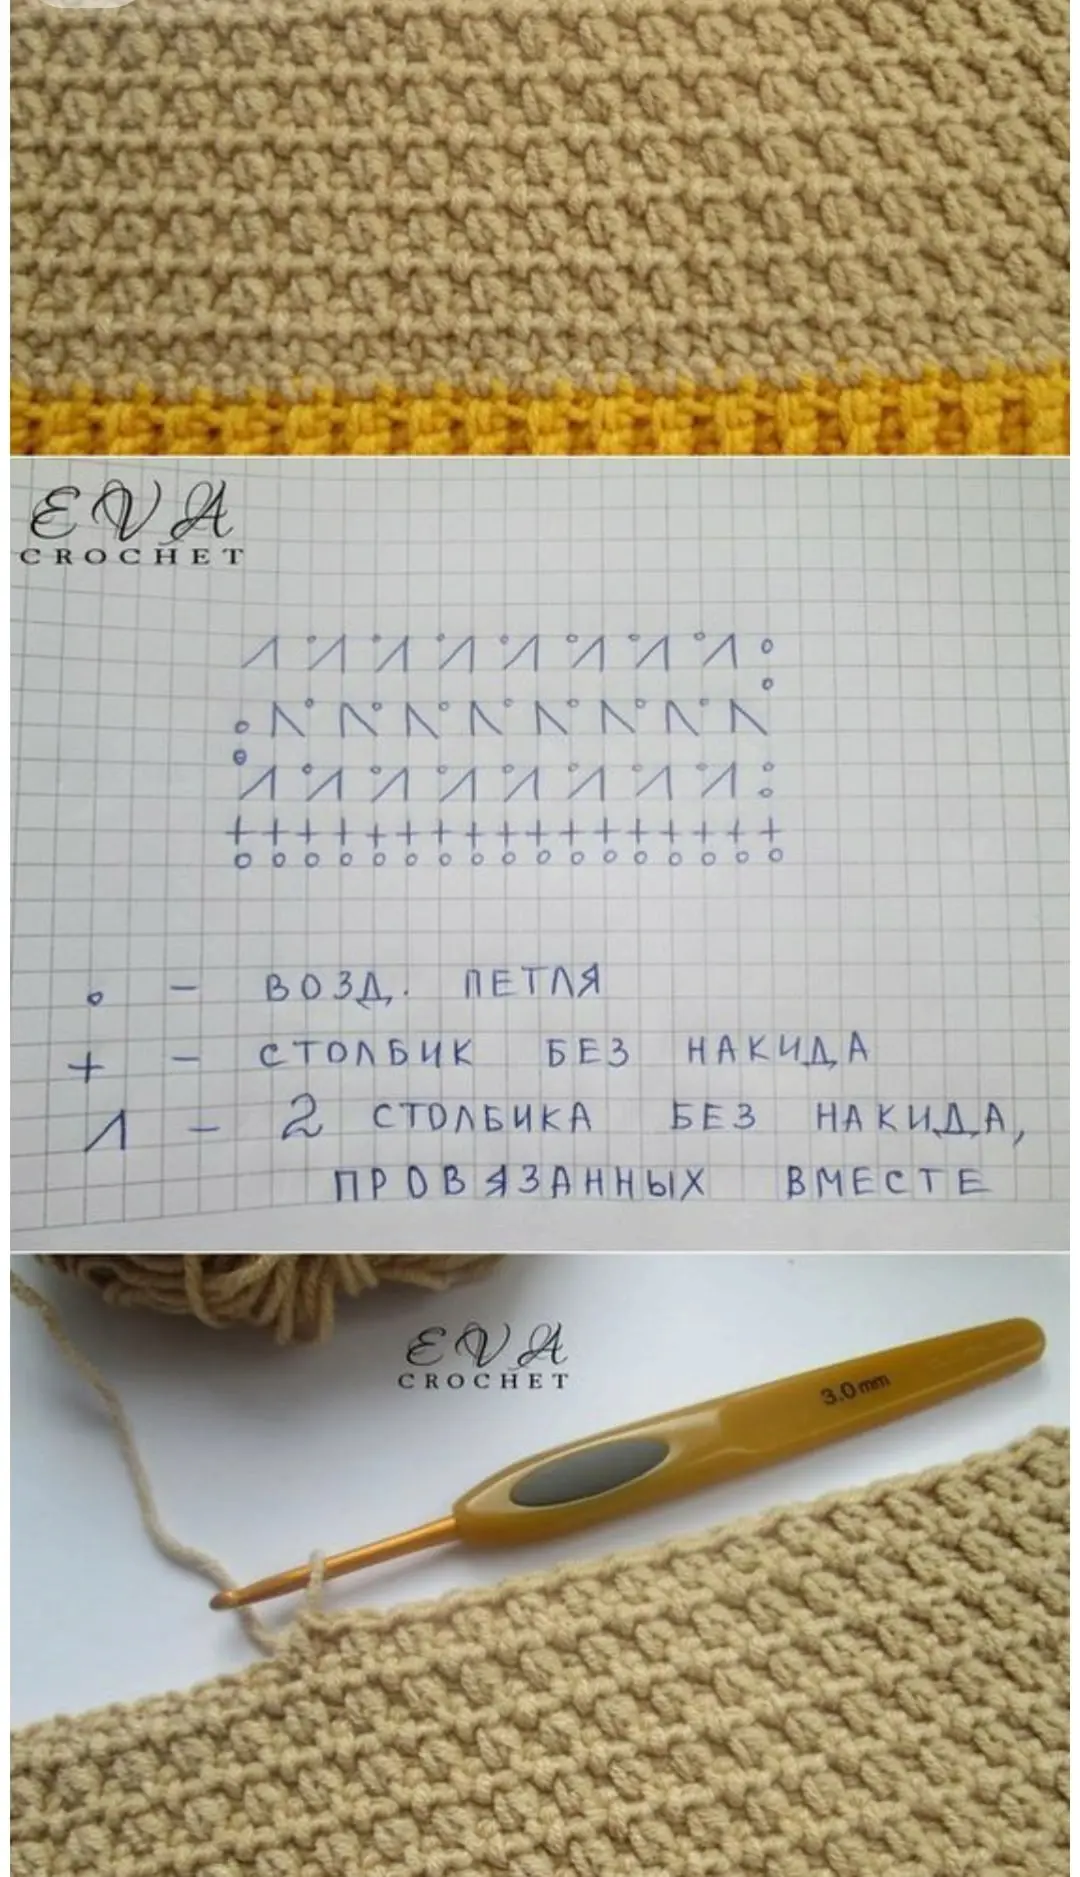 EVA
CROCHET
° – ВОЗД. ПЕТЛЯ
+ – СТОЛБИК БЕЗ НАКИДА
– 2 СТОЛБИКА БЕЗ НАКИДА,
ПРОВЯЗАННЫХ ВМЕСТЕ
EVA
CROCHET
3.0mm